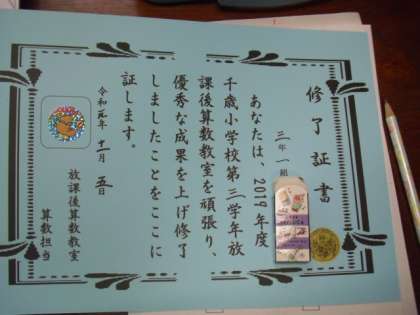 修了証書
三年一組
あなたは、2019年度
千歳小学校第三学年放
課後算数教室を頑張り、
優秀な成果を上げ修了
しましたことをここに
証します。
令和元年十一月五日
放課後算数教室
算数担当